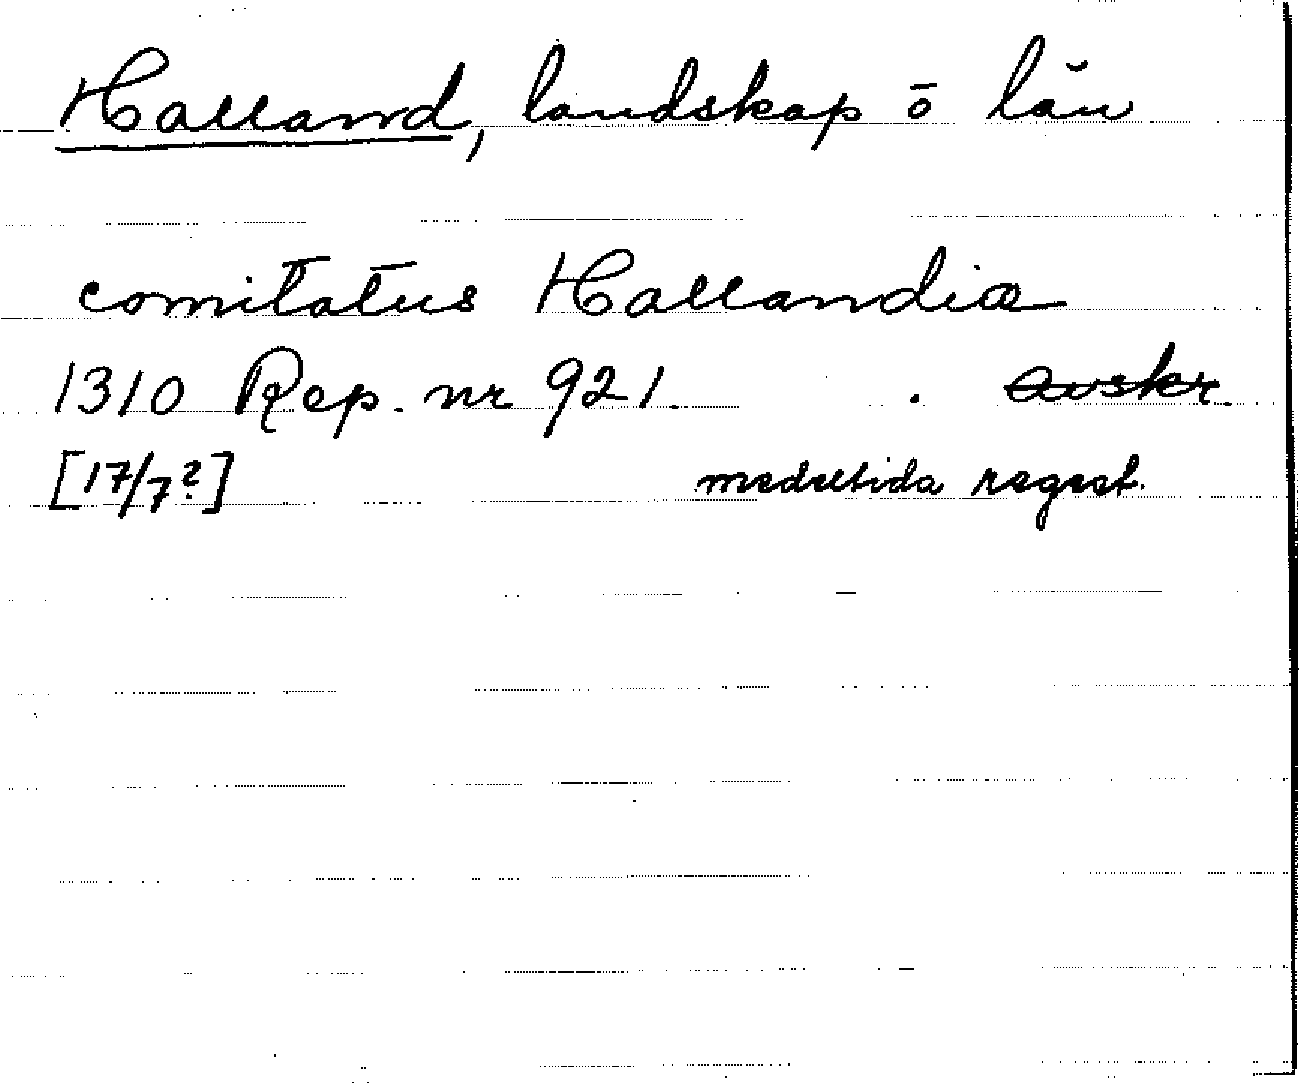 Halland, landskap ō län
comitatus Hallandiæ
1310 Rep. nr 921. avskr.
[17/7?] medeltida regest.